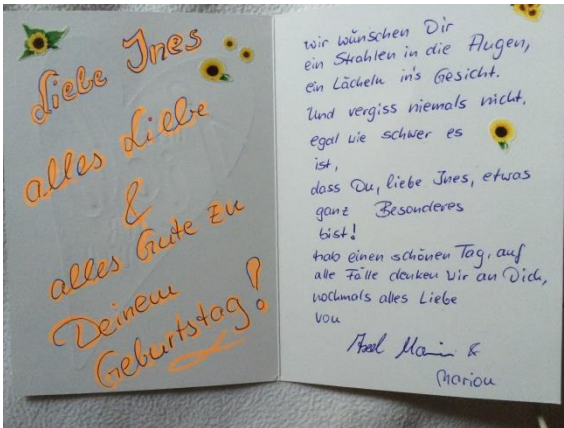 Liebe Ines
alles Liebe
&
alles Gute zu
Deinem
Geburtstag!
wir wünschen Dir
ein Strahlen in die Augen,
ein Lächeln in's Gesicht.
Und vergiss niemals nicht,
egal wie schwer es
ist,
dass Du, liebe Ines, etwas
ganz Besonderes
bist!
hab einen schönen Tag, auf
alle Fälle denken wir an Dich,
nochmals alles Liebe
von
Axel &
Marion